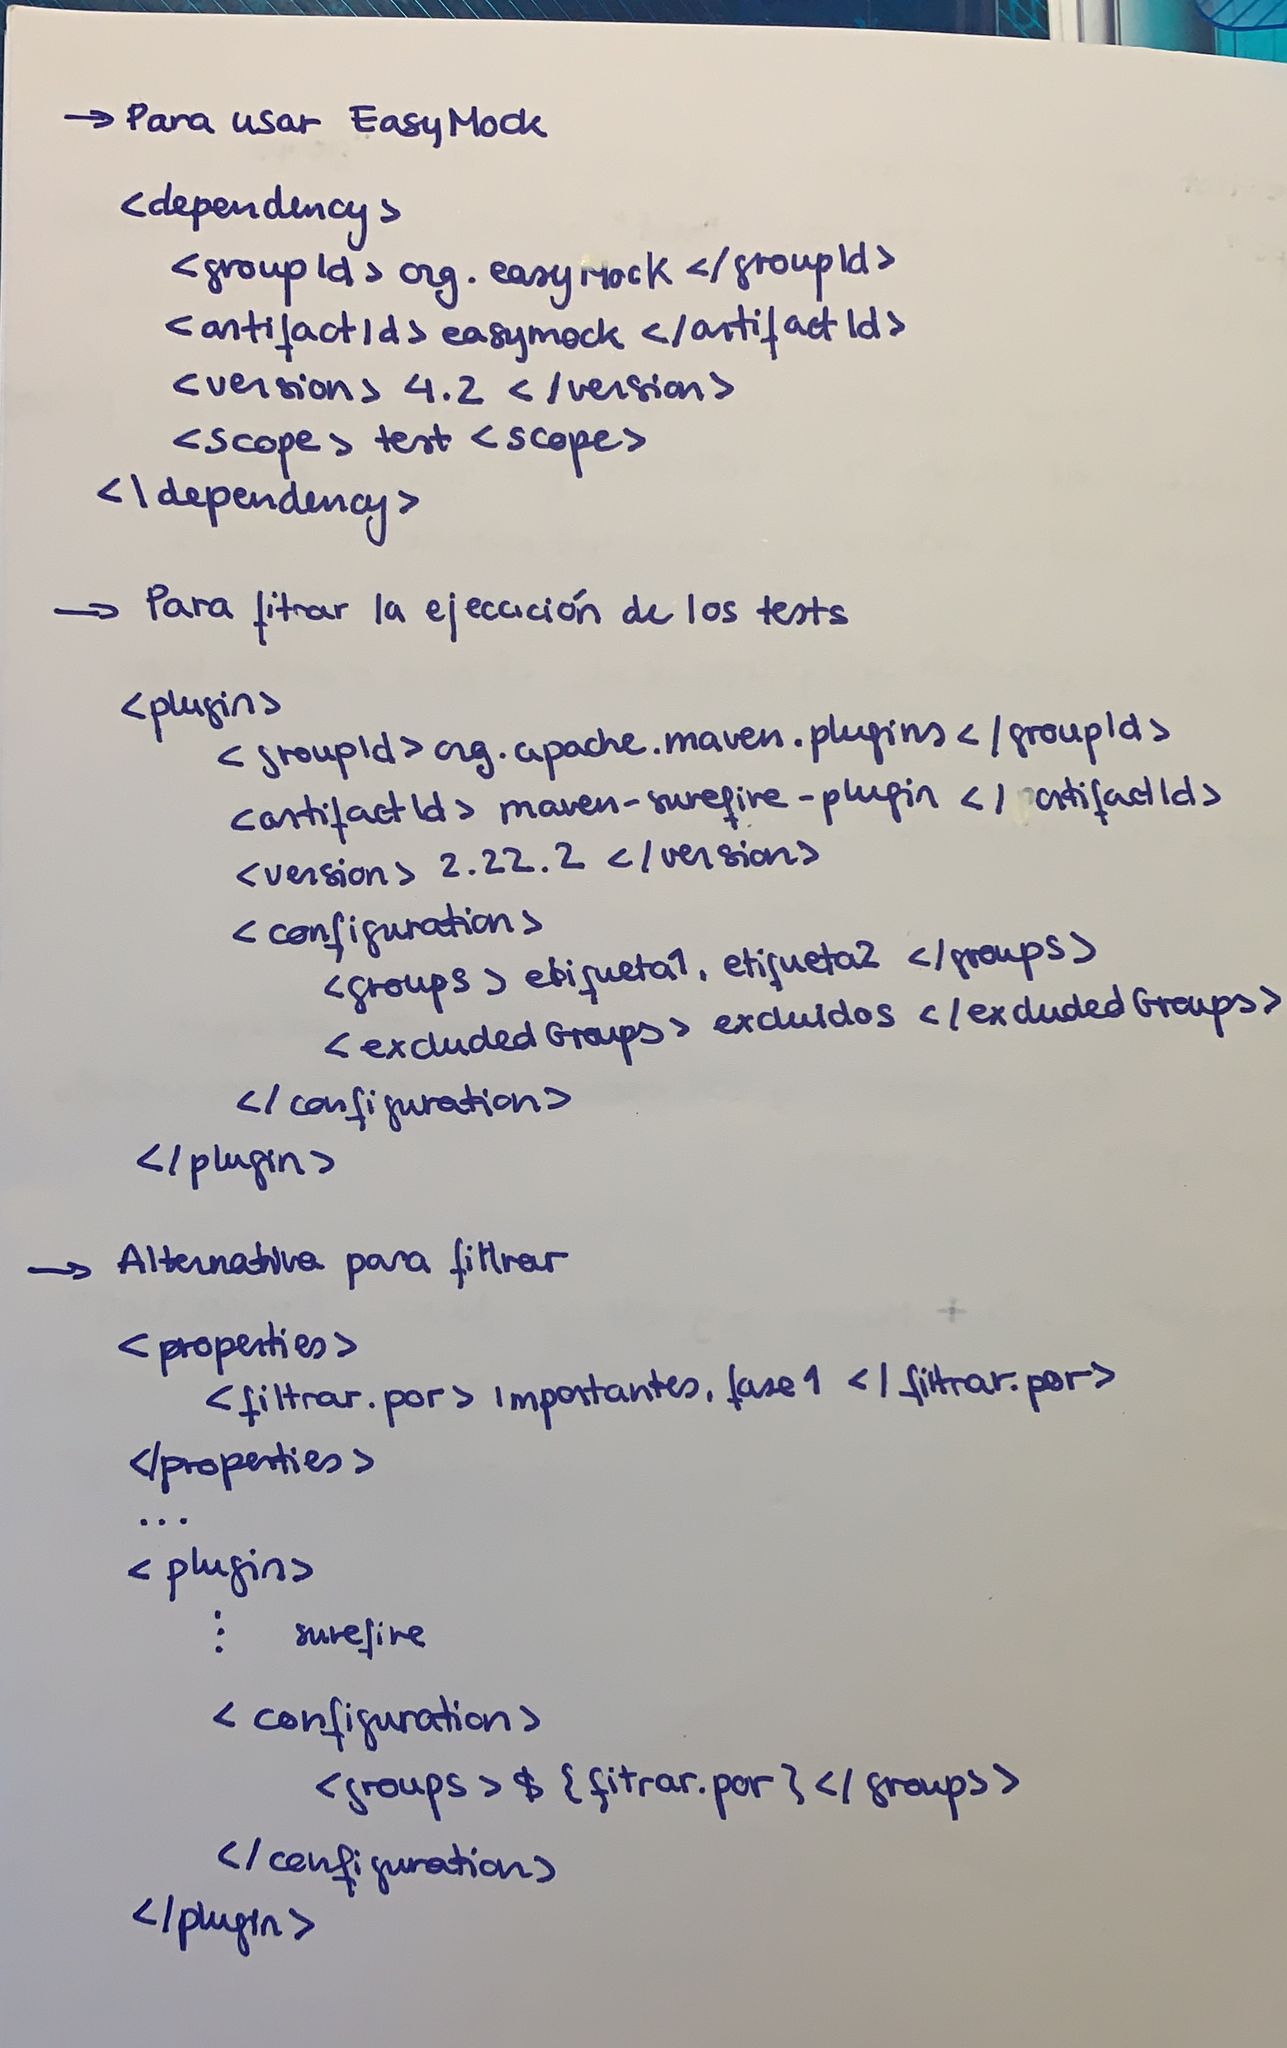 → Para usar EasyMock
<dependency>
<groupId> org.easyMock </groupId>
<artifactId> easymock </artifactId>
<version> 4.2 </version>
<scope> test <scope>
<\dependency>
→ Para fitrar la ejecución de los tests
<plugin>
<groupId> org.apache.maven.plugins </groupId>
<artifactId> maven-surefire-plugin </artifactId>
<version> 2.22.2 </version>
<configuration>
<groups> etiqueta1, etiqueta2 </groups>
<excludedGroups> excluidos </excludedGroups>
</configuration>
</plugin>
→ Alternativa para filtrar
<properties>
<filtrar.por> importantes, fase1 </filtrar.por>
</properties>
...
<plugin>
⋮ surefire
<configuration>
<groups> ${fitrar.por} </groups>
</configuration>
</plugin>